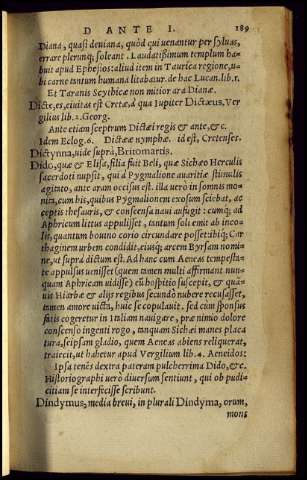 D ANTE I. 189
Diana, quasi deuiana, quòd qui uenantur per syluas,
errare plerunq; soleant. Laudatissimum templum ha-
buit apud Ephesios: aliud item in Taurica regione, u-
bi carne tantum humana litabatur. de hac Lucan. lib. 1.
Et Taranis Scythicæ non mitior ara Dianæ.
Dicte, es, ciuitas est Cretæ, à qua Iupiter Dictæus, Ver
gilius lib. 2. Georg.
Ante etiam sceptrum Dictæi regis & ante, & c.
Idem Eclog. 6. Dictææ nymphæ. id est, Cretenses.
Dictynna, uide suprà, Britomartis.
Dido, quæ & Elisa, filia fuit Beli, quæ Sichæo Herculis
sacerdoti nupsit, qui à Pygmalione auaritiæ stimulis
agitato, ante aram occisus est. illa uerò in somnis mo-
nita, cum his, quibus Pygmalionem exosum sciebat, ac
ceptis thesauris, & conscensa naui aufugit: cumq; ad
Aphricum littus appulisset, tantum soli emit ab inco-
lis, quantum bouino corio circundare posset: ibiq; Car
thaginem urbem condidit, eiusq; arcem Byrsam nomi
ne, ut supra dictum est. Ad hanc cum Aeneas tempesta-
te appulsus uenisset (quem tamen multi affirmant nun-
quam Aphricam uidisse) eũ hospitio suscepit, & quã-
uis Hiarbæ & alijs regibus secundò nubere recusasset,
tamen amore uicta, huic se copulauit. sed cùm sponsus
fatis cogeretur in Italiam nauigare, præ nimio dolore
conscenso ingenti rogo, tanquam Sichæi manes placa
tura, seipsam gladio, quem Aeneas abiens reliquerat,
traiecit, ut habetur apud Vergilium lib. 4. Aeneidos:
Ipsa tenẽs dextra pateram pulcherrima Dido, &c.
Historiographi uerò diuersum sentiunt, qui ob pudi-
citiam se interfecisse scribunt.
Dindymus, media breui, in plurali Dindyma, orum,
mons